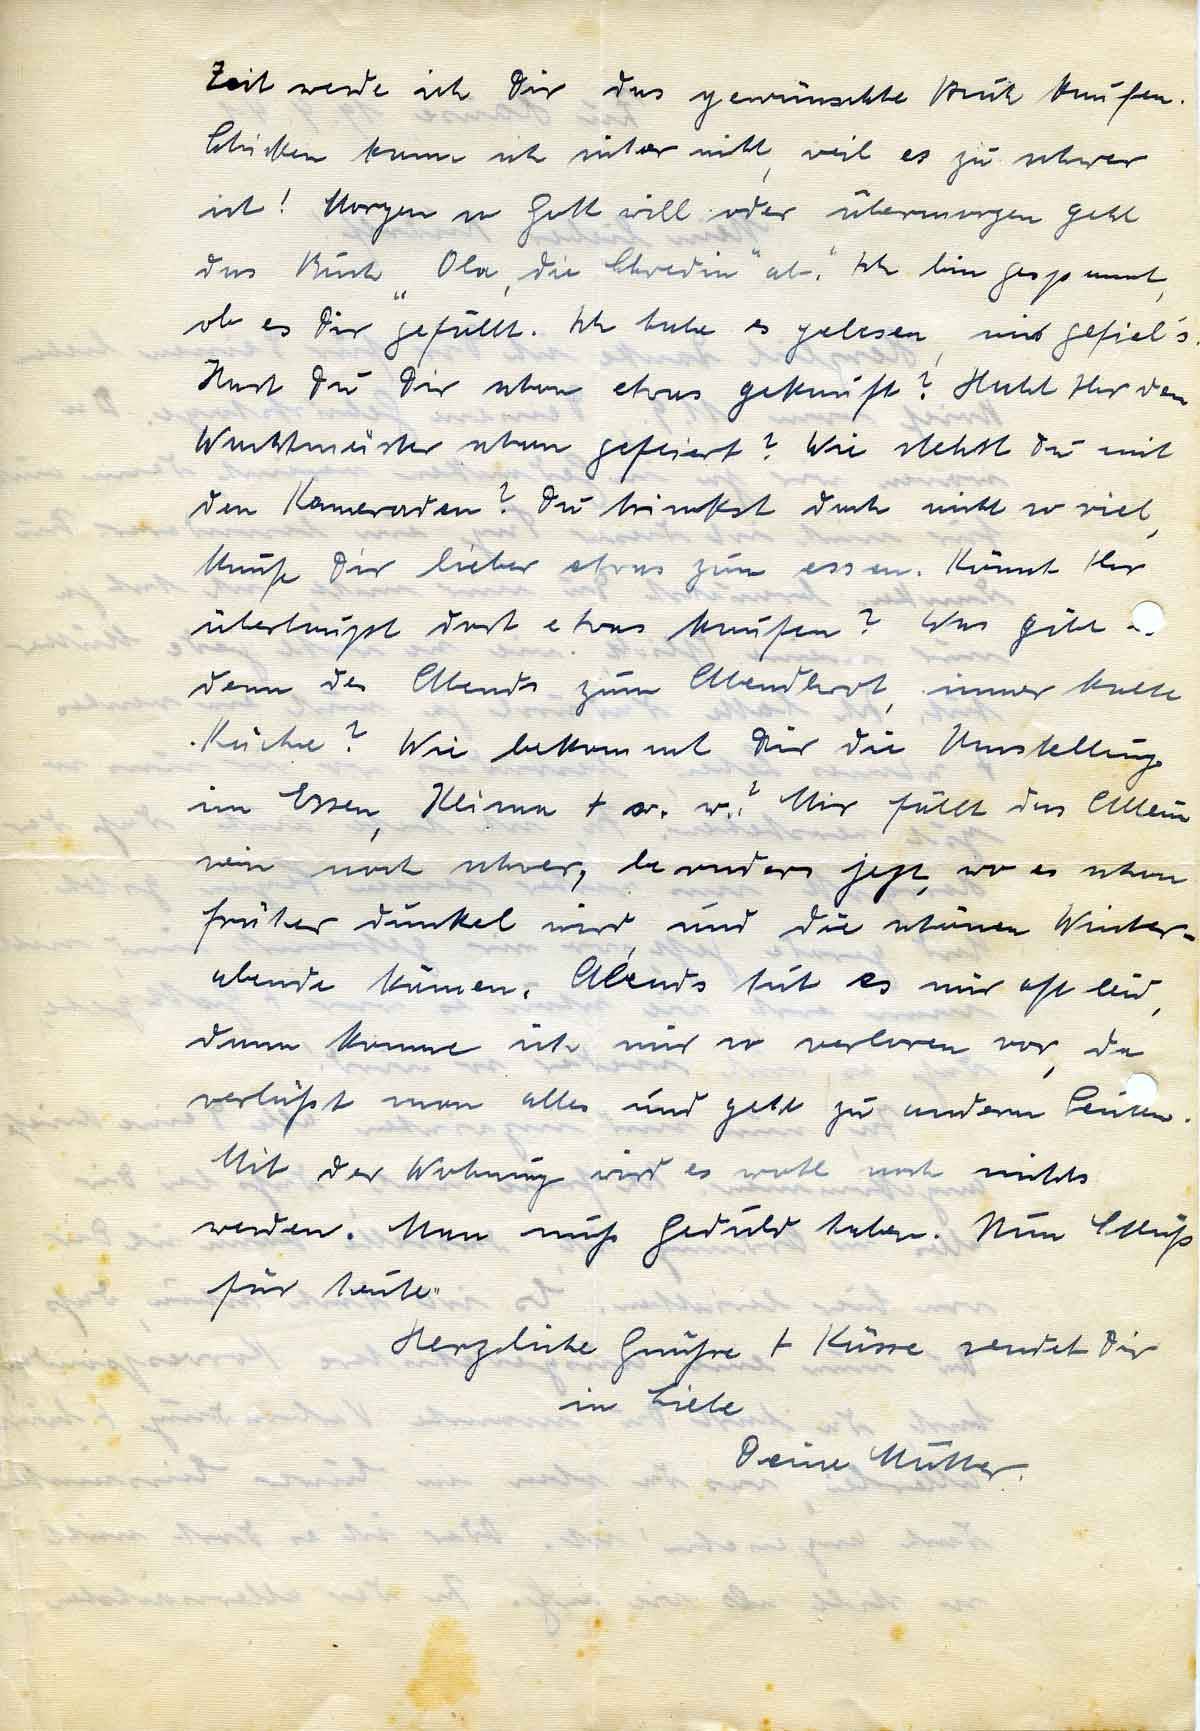 Zeit werde ich Dir das gewünschte Buch kaufen.
Schicken kann ich sicher nicht, weil es zu schwer
ist! Morgen so Gott will oder übermorgen geht
das Buch „Ola, die Schwedin“ ab. Ich bin gespannt,
ob es Dir gefällt. Ich habe es gelesen, mir gefiel's.
Hast Du Dir schon etwas gekauft? Habt Ihr den
Wachtmeister schon gefeiert? Wie stehst Du mit
den Kameraden? Du trinkst doch nicht so viel,
kaufe Dir lieber etwas zum essen. Könnt Ihr
überhaupt dort etwas kaufen? Was gibt es
denn des Abends zum Abendbrot, immer kalte
Küche? Wie bekommt Dir die Umstellung
im Essen, Klima + s. w.? Mir fällt das Allein
sein noch schwer, besonders jetzt, wo es schon
früher dunkel wird, und die schönen Winter-
abende kämen. Abends tut es mir oft leid,
dann komme ich mir so verloren vor, da
verläßt man alles und geht zu andern Leuten.
Mit der Wohnung wird es wohl noch nichts
werden. Man muß Geduld haben. Nun Schluß
für heute.
Herzliche Grüße + Küsse sendet Dir
in Liebe
Deine Mutter.